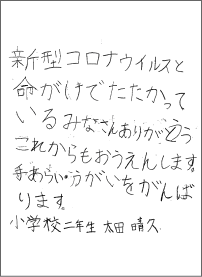 新型コロナウイルスと
命がけでたたかって
いるみなさんありがとう
これからもおうえんします。
手あらい・うがいをがんば
ります。
小学校二年生 太田 晴久